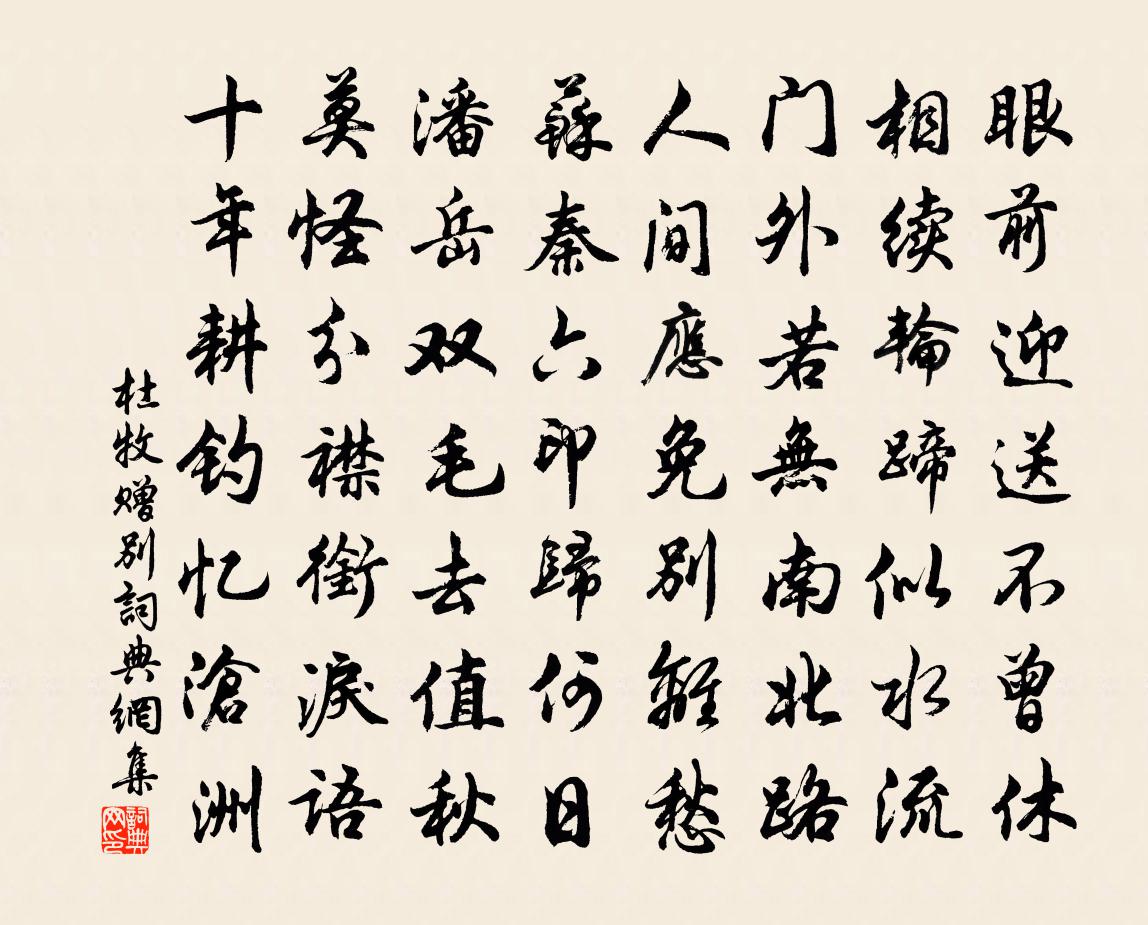 眼前迎送不曾休
相续輪蹄似水流
门外若無南北路
人间應免别離愁
蘇秦六印歸何日
潘岳双毛去值秋
莫怪分襟銜淚語
十年耕钓忆滄洲
杜牧赠别詞典網集
詞典
网印